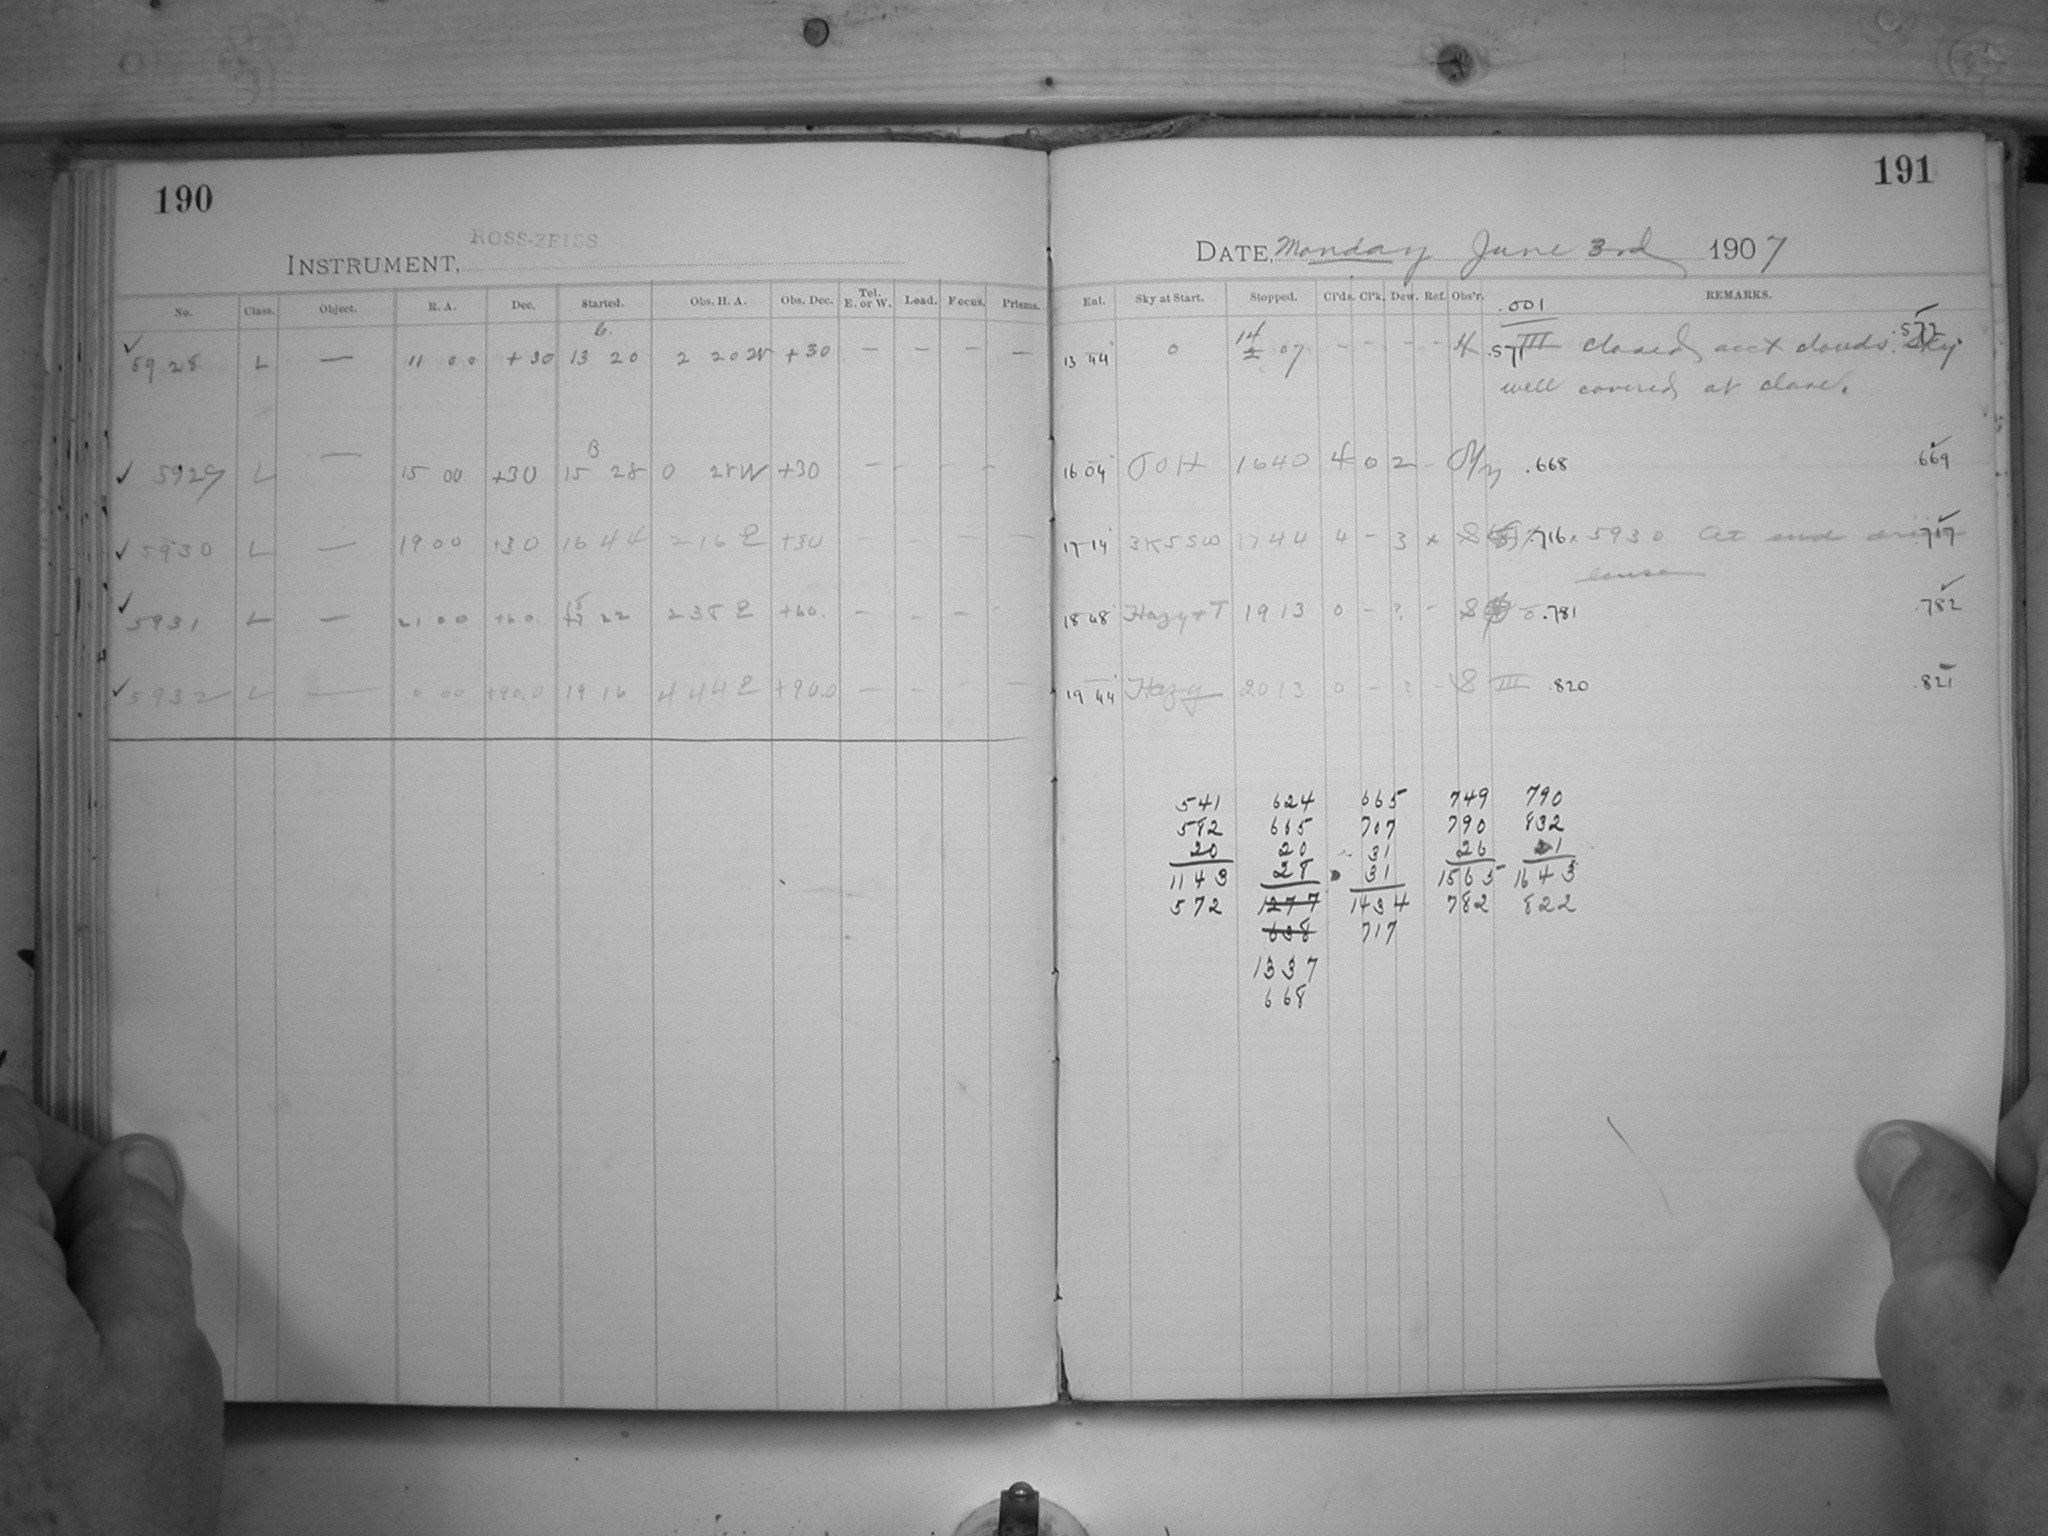 190
ROSS-ZEISS
INSTRUMENT,
No. Class. Object. R. A. Dec. Started. Obs. H. A. Obs. Dec. Tel. E. or W. Load. Focus. Prisms.
6.
✓ 5928 L — 11 00 +30 13 20 2 20 W +30 — — — — —
B
✓ 5929 L — 15 00 +30 15 28 0 28 W +30 — - - -
✓ 5930 L — 19 00 +30 16 44 2 16 E +30 — — — — —
✓ 5931 L — 21 00 +60. 22 2 38 E +60. — - — -
✓ 5932 L — 0 00 +90.0 19 16 4 44 E +90.0 — — — — —
191
DATE, Monday June 3rd 1907
Enl. Sky at Start. Stopped. Cl'ds. Cl'k. Dew. Ref. Obs'r. REMARKS.
.001
13 44 0 14 07 - - - - H .571 III closed acct clouds. Sky .572
well covered at close.
16 04 1640 4 0 2 - .668 .669
17 14 3K5SW 1744 4 - 3 x S .716 x 5930 At end .717
18 48 Hazy + T 1913 0 - ? - S .781 .782
19 44 Hazy 2013 0 - ? - S III .820 .821
541 624 665 749 790
582 665 707 790 832
20 20 31 26 21
1143 28 31 1565 1643
572 1277 1434 782 822
638 717
1337
668